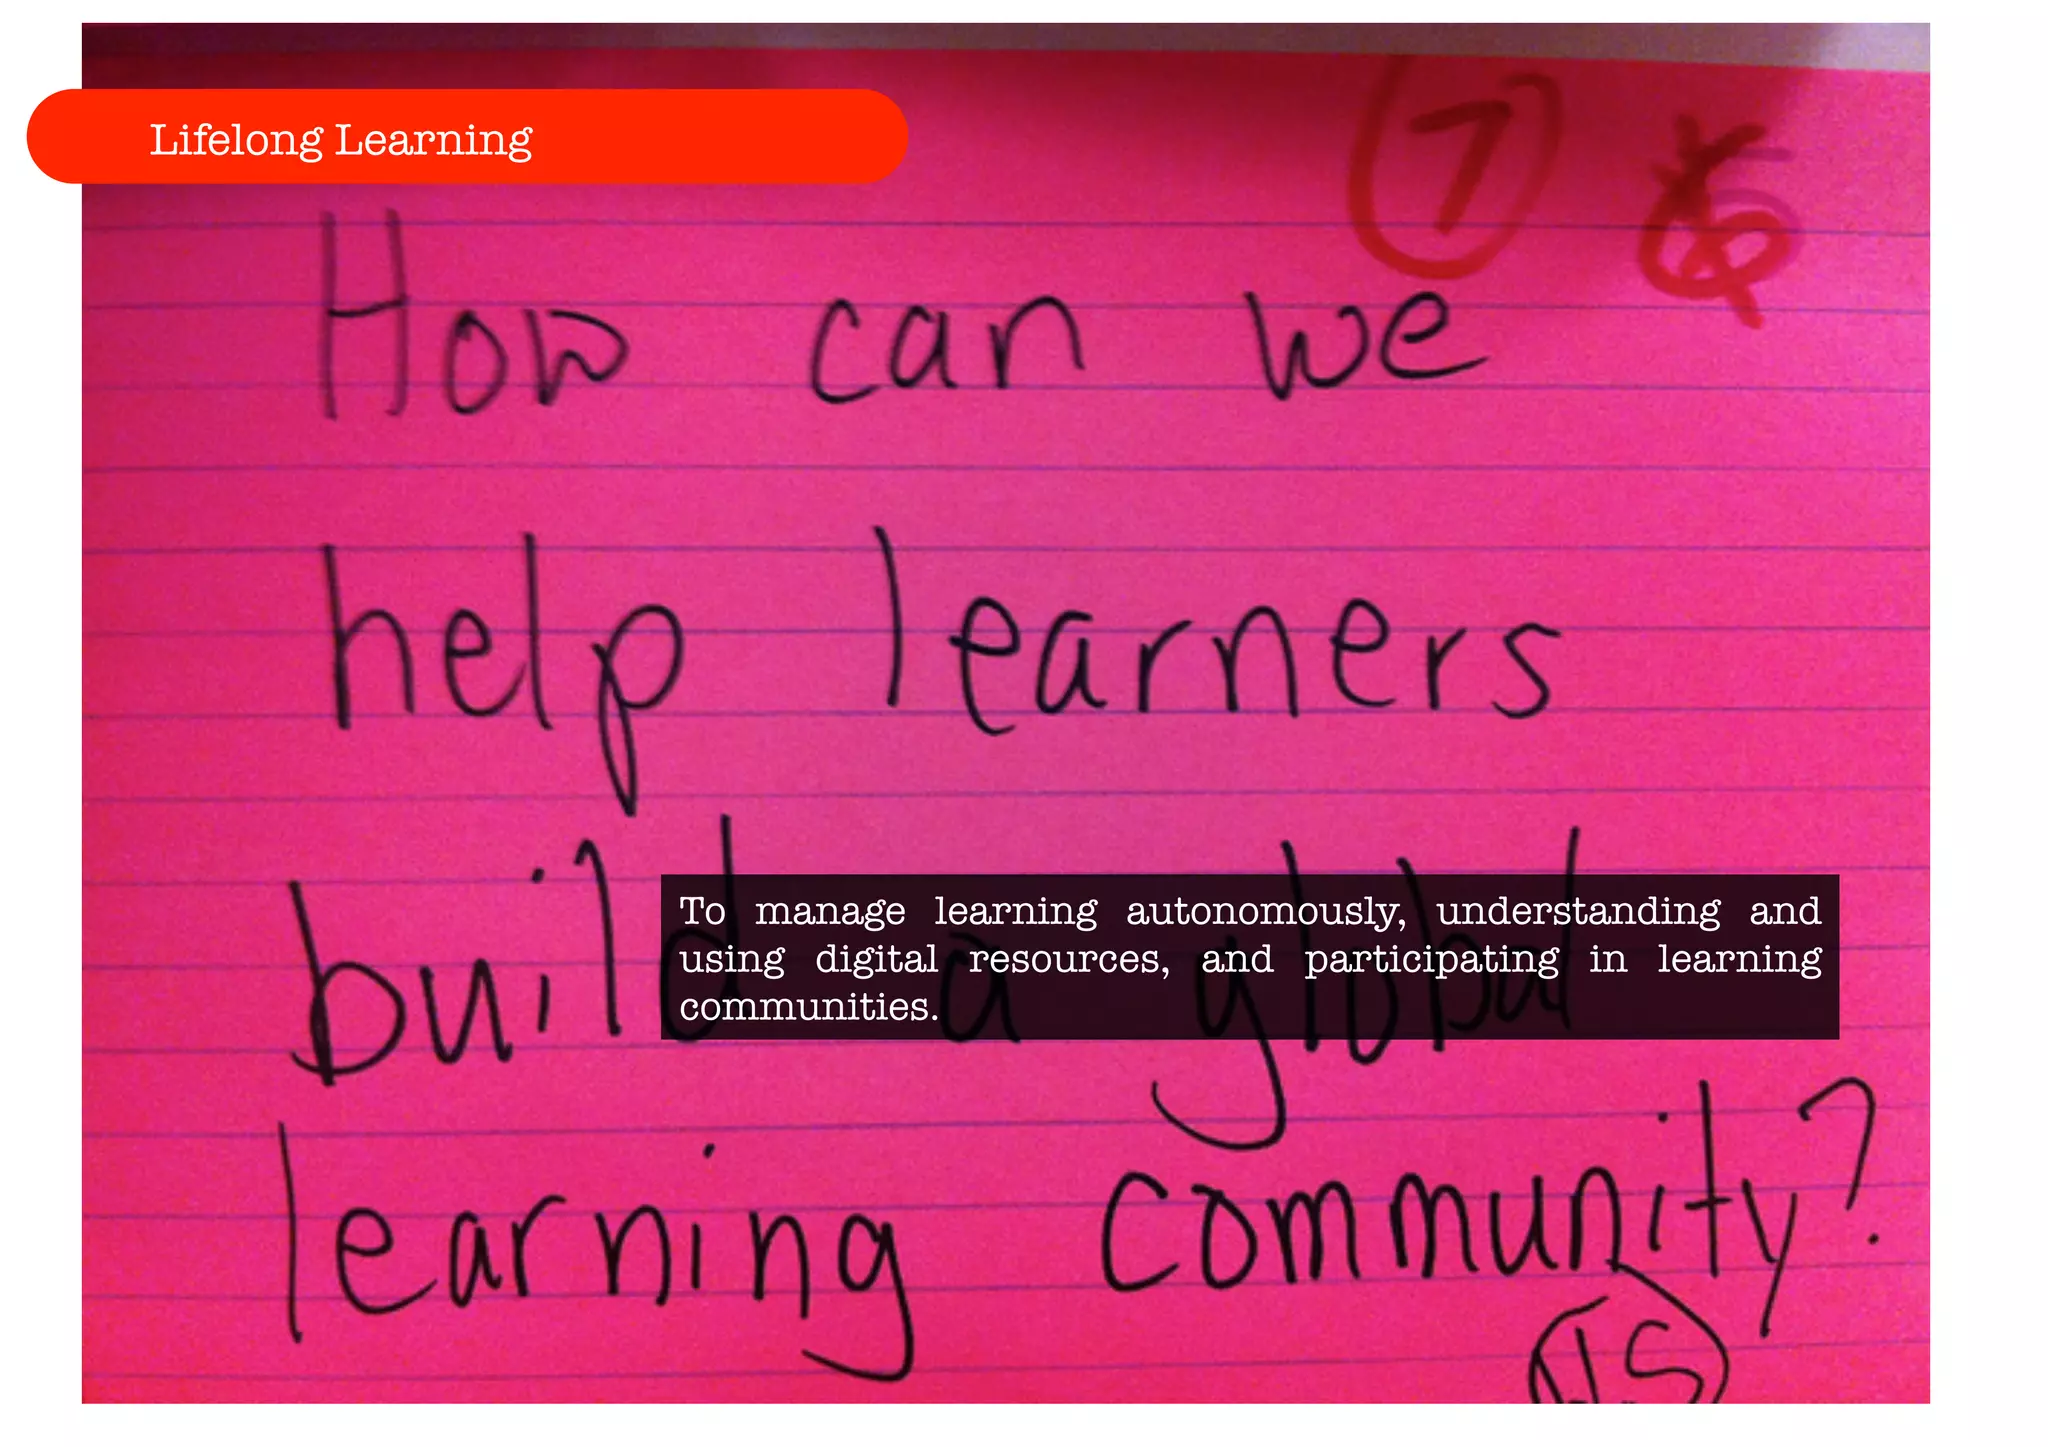 Lifelong Learning
7
How can we
help learners
build a global
To manage learning autonomously, understanding and
using digital resources, and participating in learning
communities.
learning community?